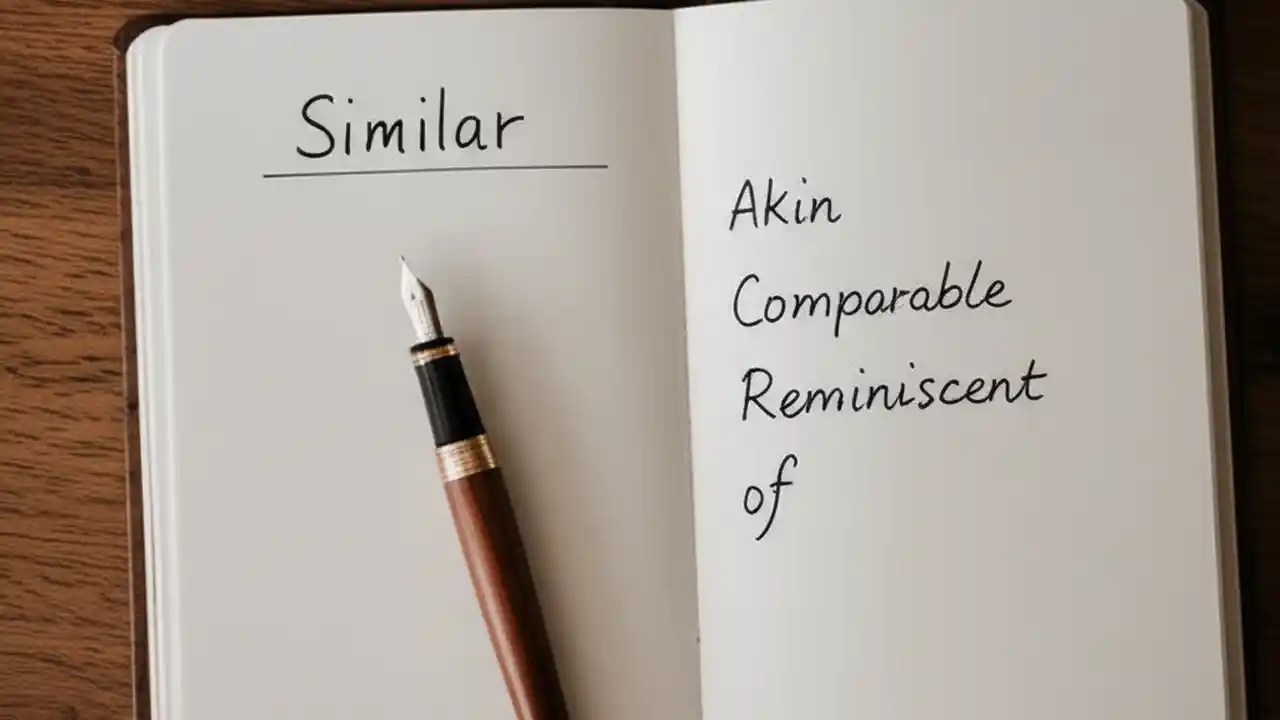 Similar
Akin
Comparable
Reminiscent
of